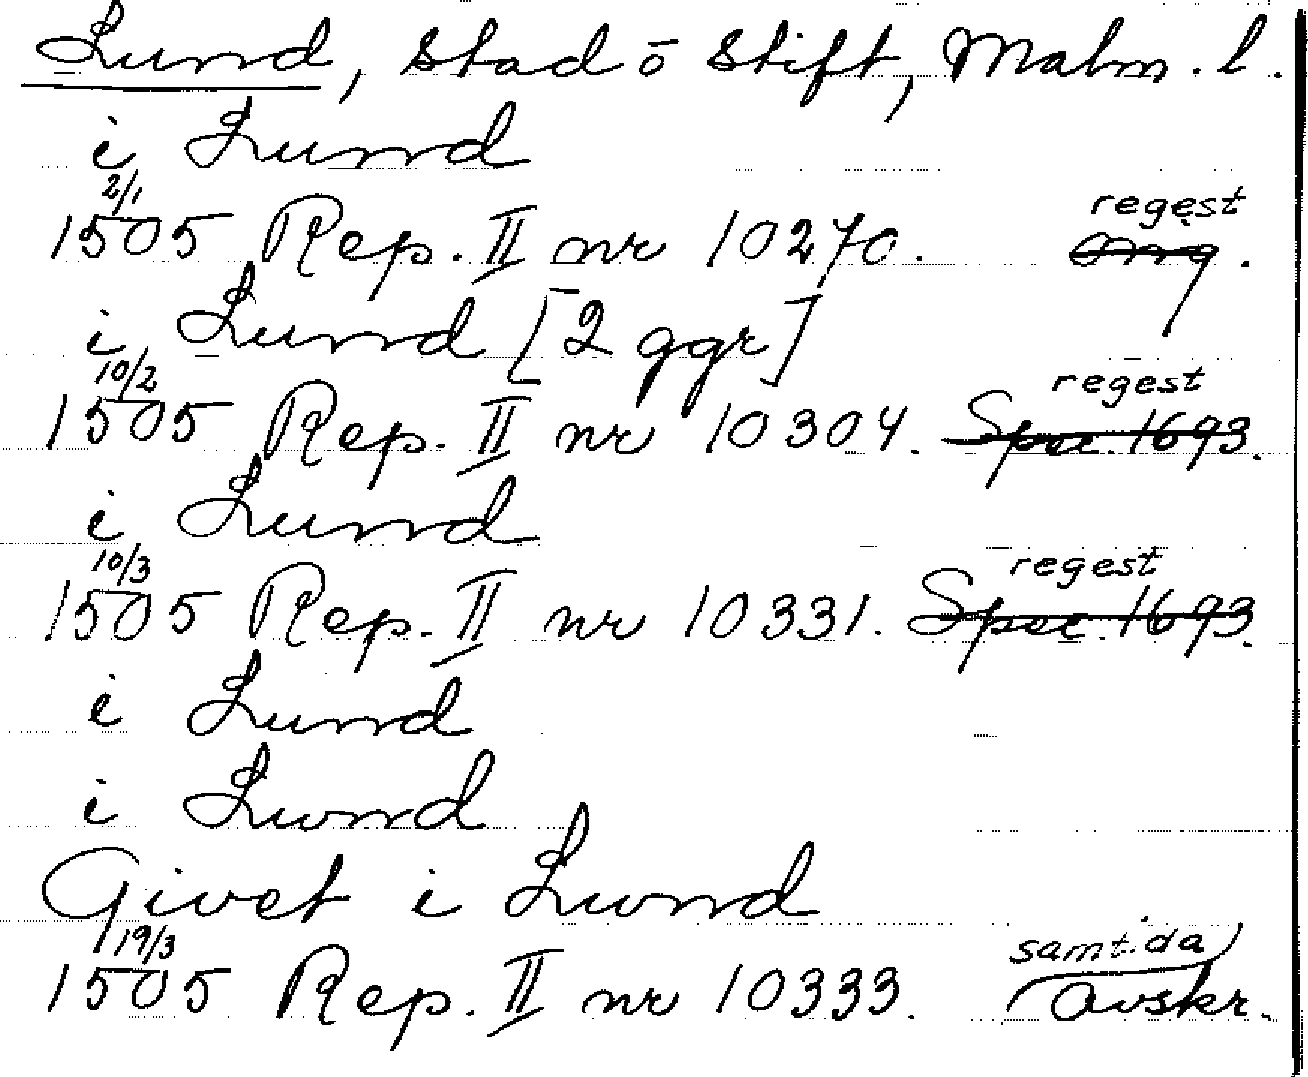 Lund, stad o stift, Malm. l.
i Lund
2/1
1505 Rep. II nr 10270. regest
i Lund [2 ggr]
10/2
1505 Rep. II nr 10304. regest Spec. 1693.
i Lund
10/3
1505 Rep. II nr 10331. regest Spec. 1693.
i Lund
i Lund
Givet i Lund
19/3
1505 Rep. II nr 10333. samtida avskr.